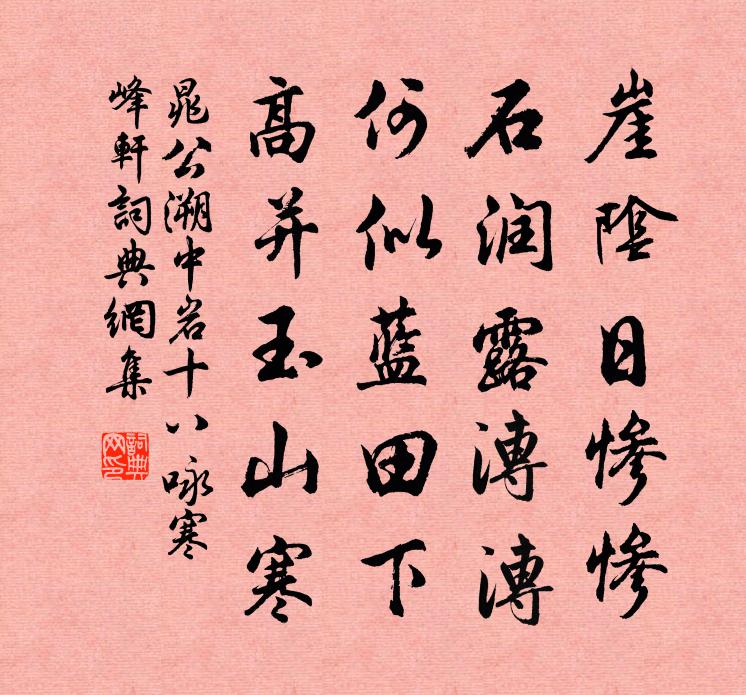 崖陰日慘慘
石润露漙漙
何似藍田下
高并玉山寒
晁公溯中岩十八咏寒
峰軒詞典網集
詞典网印